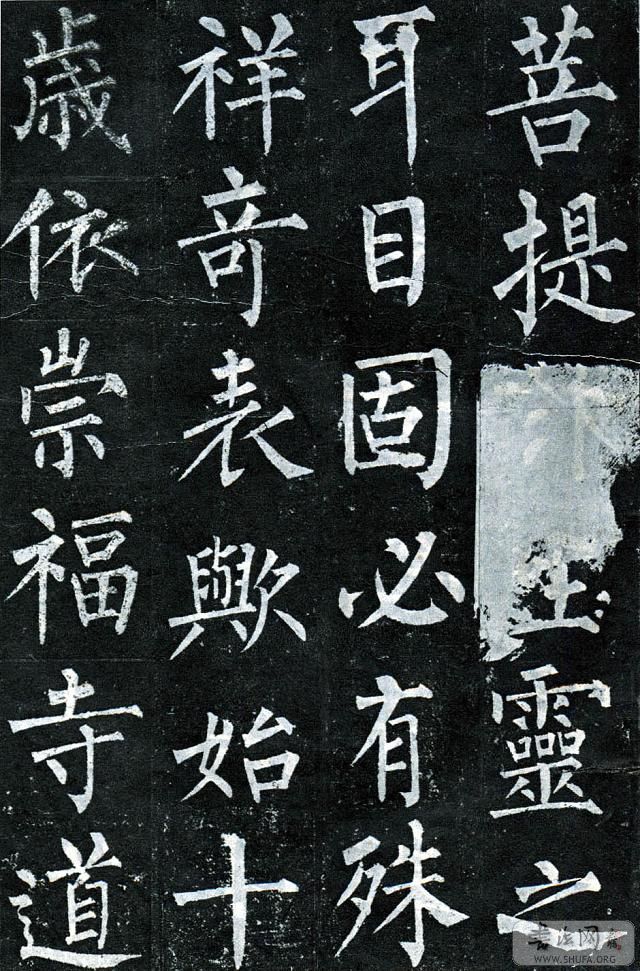 菩提生靈之
耳目固必有殊
祥竒表歟始十
歳依崇福寺道
书法网
WWW.SHUFA.ORG